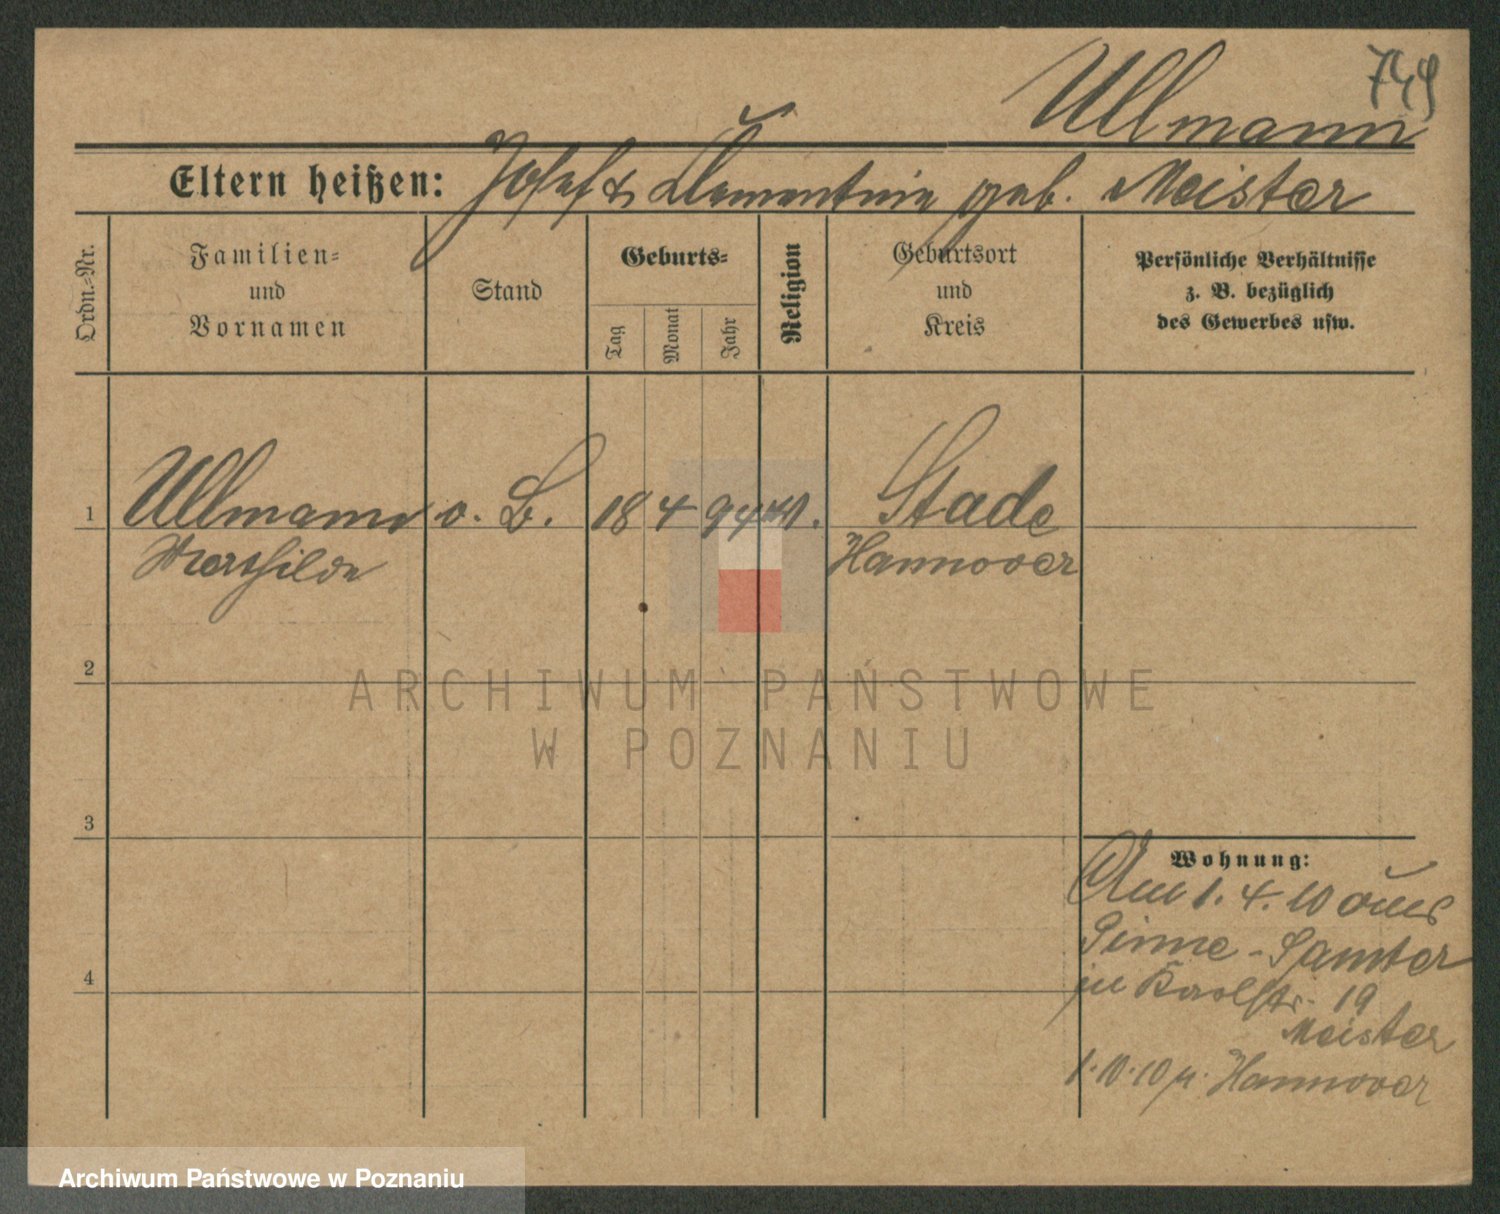 749
Ullmann
Eltern heißen: Josef & Clementine geb. Meister
Ordn.-Nr.
Familien-
und
Vornamen
Stand
Geburts-
Tag
Monat
Jahr
Religion
Geburtsort
und
Kreis
Persönliche Verhältnisse
z. B. bezüglich
des Gewerbes usw.
1 Ullmann o. B. 18 4 94 Stade
Mathilde Hannover
2
3
4
Wohnung:
Am 1. 4. 10 aus
Pinne - Samter
zu Karlstr. 19
Meister
1.10.10 n. Hannover
ARCHIWUM PAŃSTWOWE
W POZNANIU
Archiwum Państwowe w Poznaniu